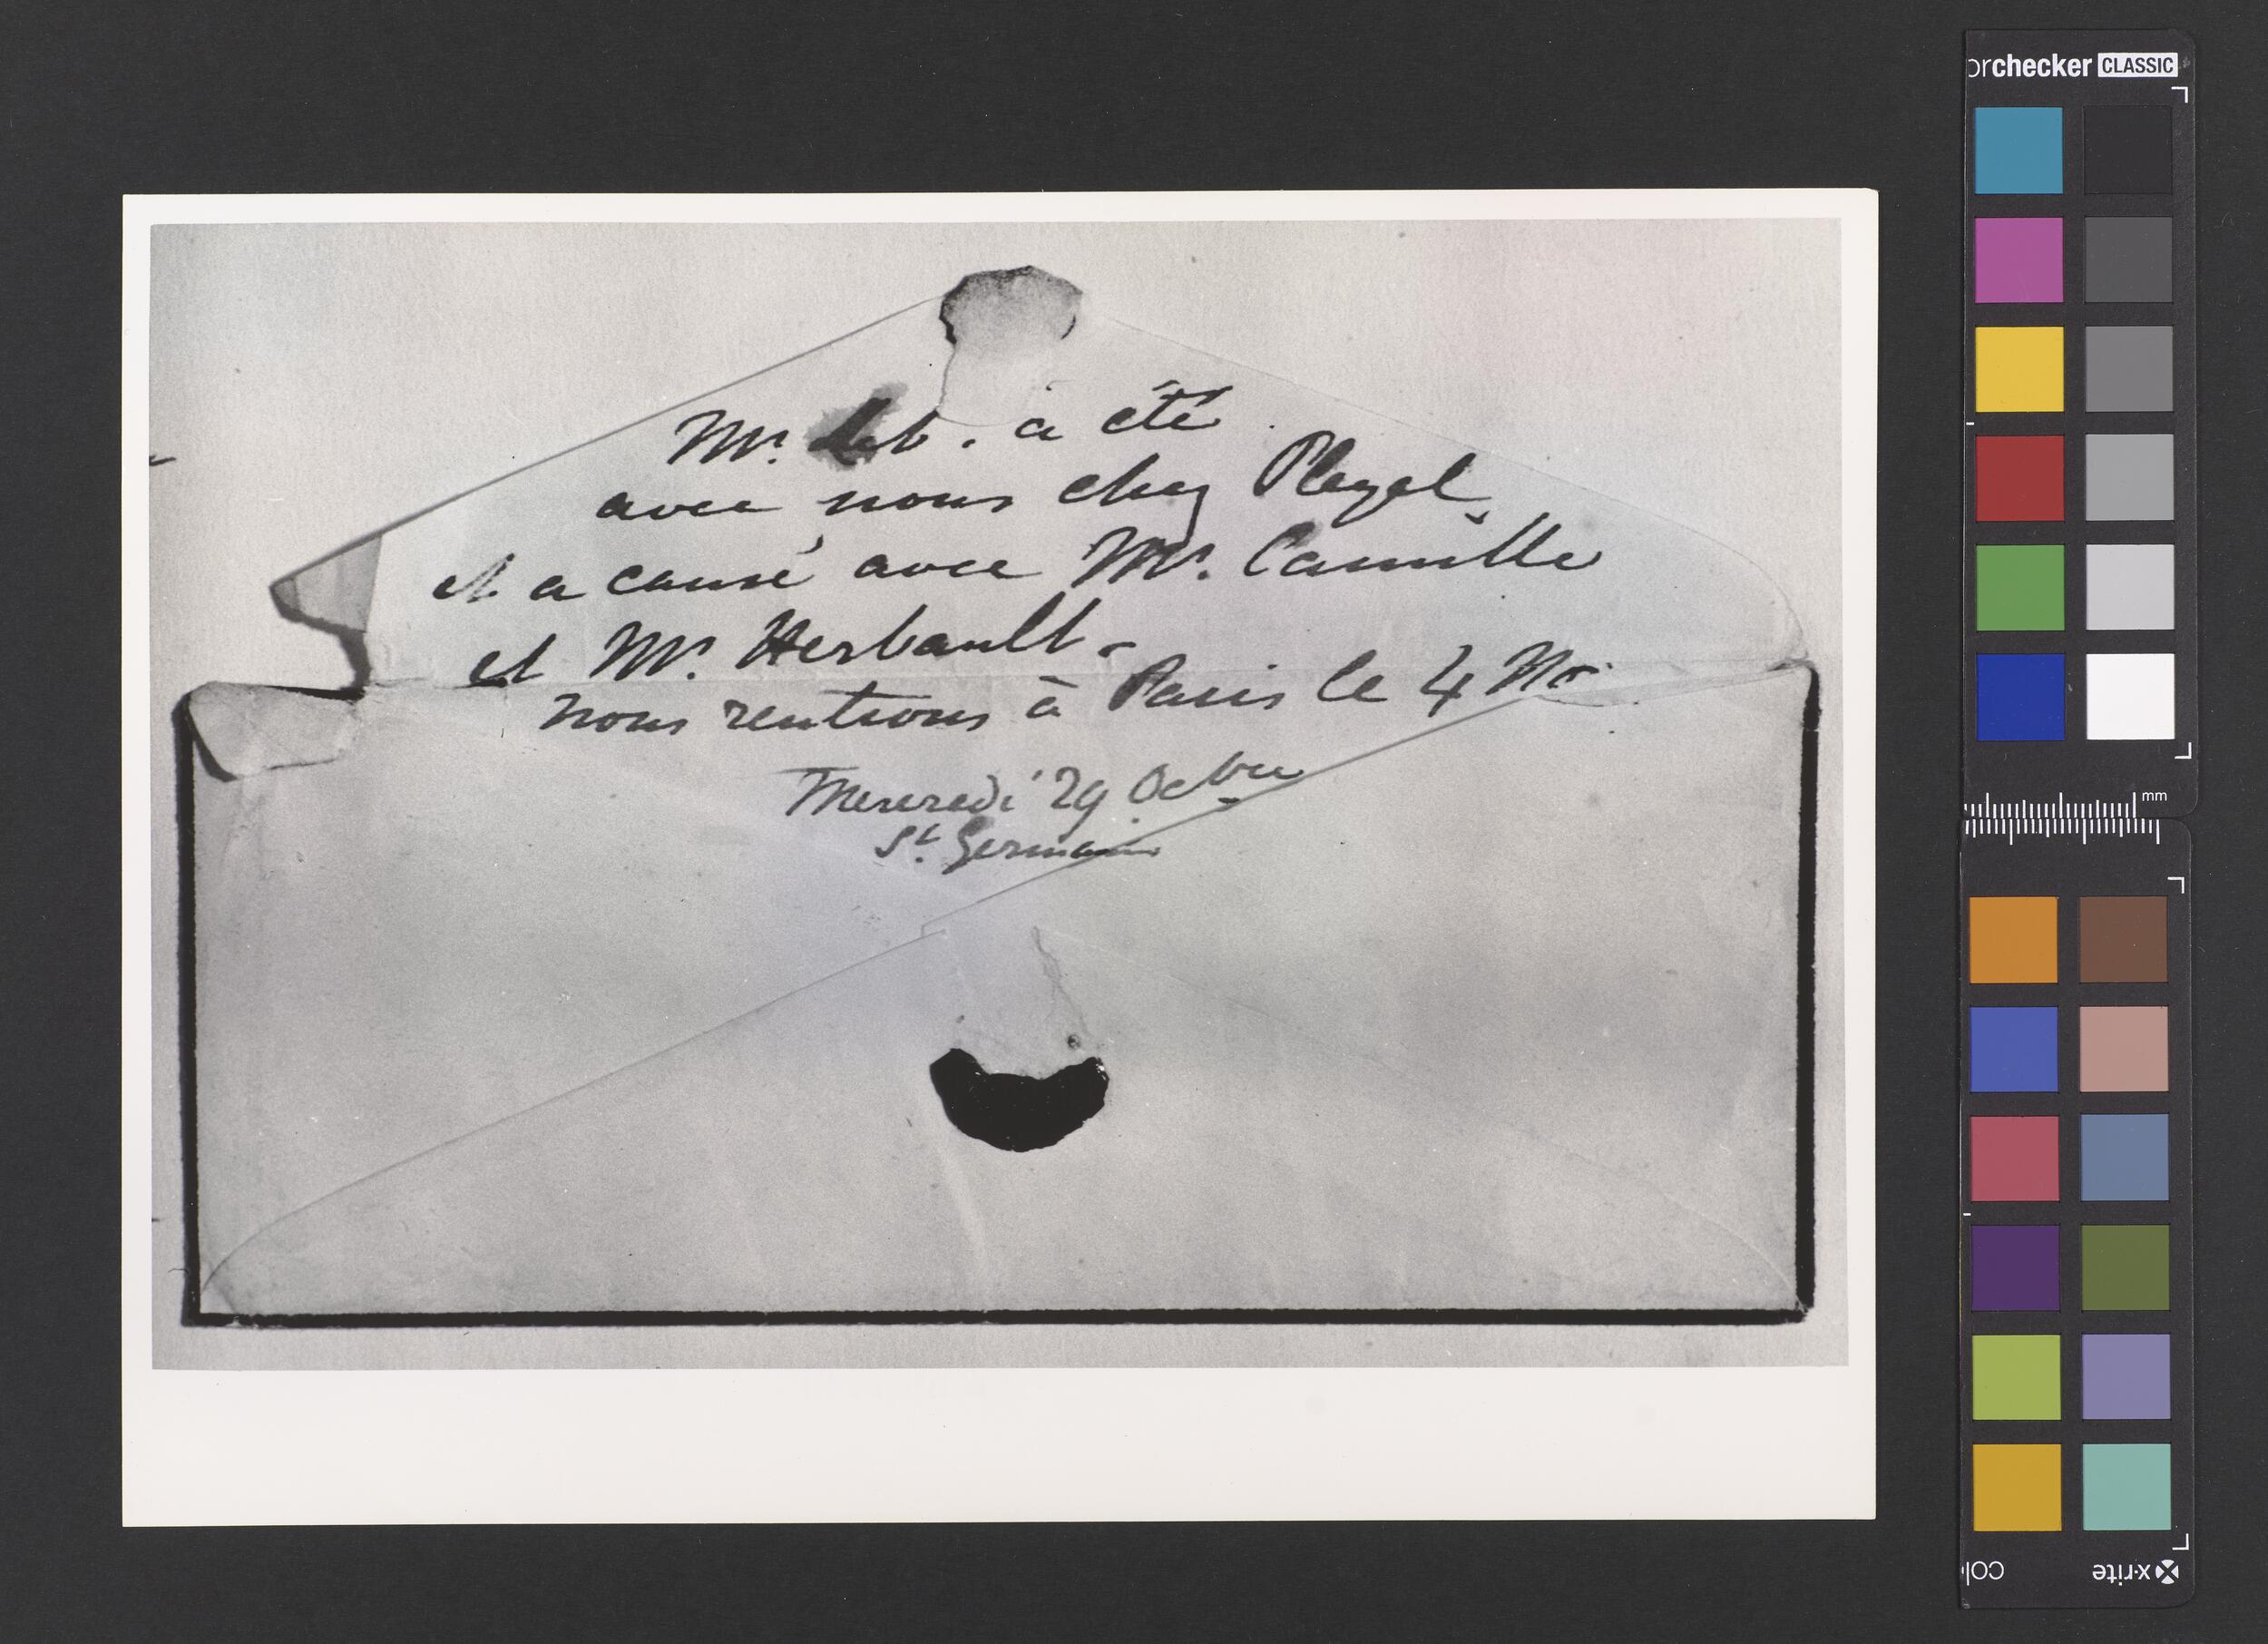 Mr. Leb. a été
avec nous chez Pleyel,
et a causé avec Mr. Camille
et Mr. Herbault.
nous rentrons à Paris le 4 No
Mercredi 29 Octbre
St. Germain
orchecker CLASSIC
mm
col
x-rite